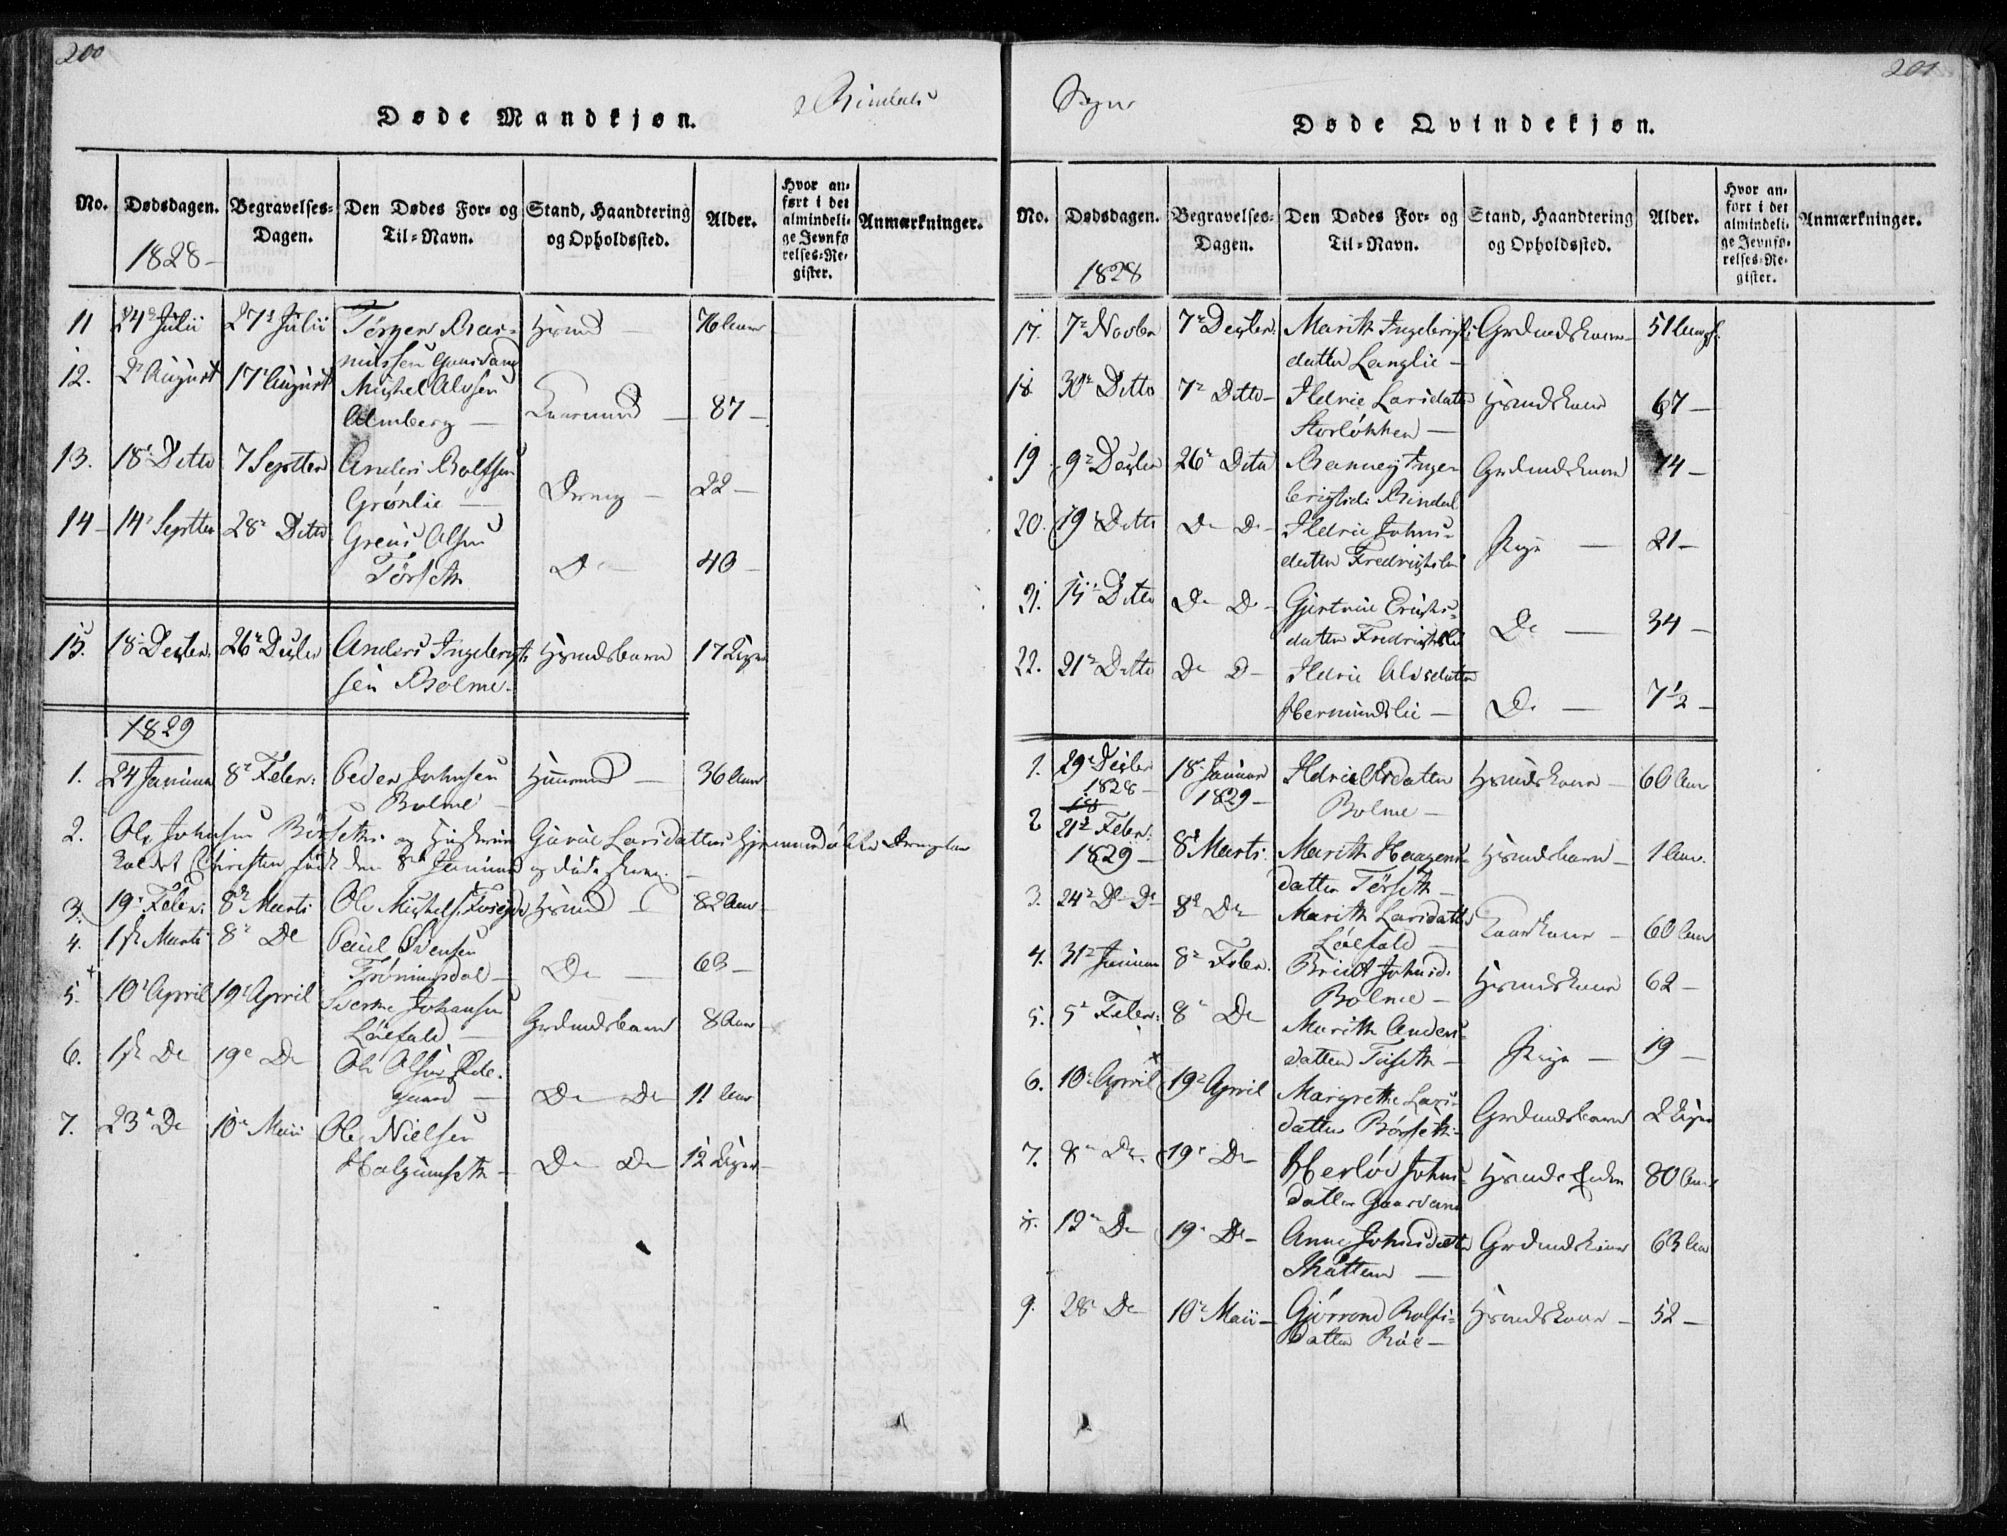 200
Døde Mandkjøn.
Rindals
No.
Dødsdagen.
Begravelses-Dagen.
Den Dødes For- og Til-Navn.
Stand, Haandtering og Opholdssted.
Alder.
Hvor anført i det almindelige Jevnførelses-Register.
Anmærkninger.
1828
11 24de Julii 27de Julii Jørgen Ras-
mussen
76 Aar
12. 2 August 17 August Michel Olsen
Almberg
87
13. 18 Ditto 7 Septbr Anders Rolfsen
Grønlie
Dreng
22
14 14 Septbr 28 Ditto Olsen
Tørseth
De
40
15. 18 Decbr. 26 Decbr Anders Ingebrigts
sen Bolme
Huusmdsbarn 17 Uger
1829
1. 24 Januar 8 Febr: Peder Johnsen
Bolme
Huusmd 36 Aar
2. Ole Johnsen Børseth og Hustrue Larsdatter
kaldet Christen født den 8de Januar og døde
3. 19 Febr: 8de Marts Ole Michels.
82 Aar
4. 1ste Marts 8 De Paul Svensen
Trønningsdal
De
63
5. 10 April 19 April Sverke Johansen
Løefald
Grdmdsbarn 8 Aar
6. 1ste De 19 De Ole Olsen
De De 11 Aar
7. 23 De 10 Maii Ole Nielsen
Halgunseth
De De 12 Uger
201
Sogn
Døde Qvindekjøn.
No.
Dødsdagen.
Begravelses-Dagen.
Den Dødes For- og Til-Navn.
Stand, Haandtering og Opholdssted.
Alder.
Hvor anført i det almindelige Jevnførelses-Register.
Anmærkninger.
1828
17. 7 Novbr 7 Decbr. Marith Ingebrigts
datter Langlie
Grdmdskone 51
18 30 Ditto 7 Ditto Ildrie Larsdatter
Storløkken
Huusmdskone 67
19 9 Decbr 26 Ditto Ranney Inge-
brigtsd. Rindal
Grdmdskone 74
20. 19 Ditto De De Ildrie Johns-
datter Fredrichslie
Pige 21
21. 15 Ditto De De Gjertrue Erichs-
datter Fredrichslie
De 34
22. 21 Ditto De De Ildrie Olsdatter
Hermundslie
De 7 1/2
1. 29 Decbr 1828 18 Januar 1829 Ildrie datter
Bolme
Huusmdskone 60 Aar
2 21 Febr: 1829 8 Marts Marith Haagens-
datter Tørseth
Huusmdsbarn 1 Aar.
3. 24 De De 8de De Marith Larsdatter
Løefald
Kaarkone 60 Aar
4. 31 Januar 8 Febr. Brit Johnsd.
Bolme
Huusmdskone 62
5. 5 Febr: 8 De Marith Anders-
datter Tiset
Pige 19
6. 10 April 19 April Margrethe Lars-
datter Børseth
Grdmdsbarn 2 Uger
7. 8 De. 19 De Herløe Johns-
datter
Huusmds Enke 80 Aar
8. 12 De 19 De Anne Johnsdatter
Skaltem
Grdmdskone 63 Aar
9. 28 De 10 Maii Gjørrond Rolfs-
datter Røe
Huusmdskone 52